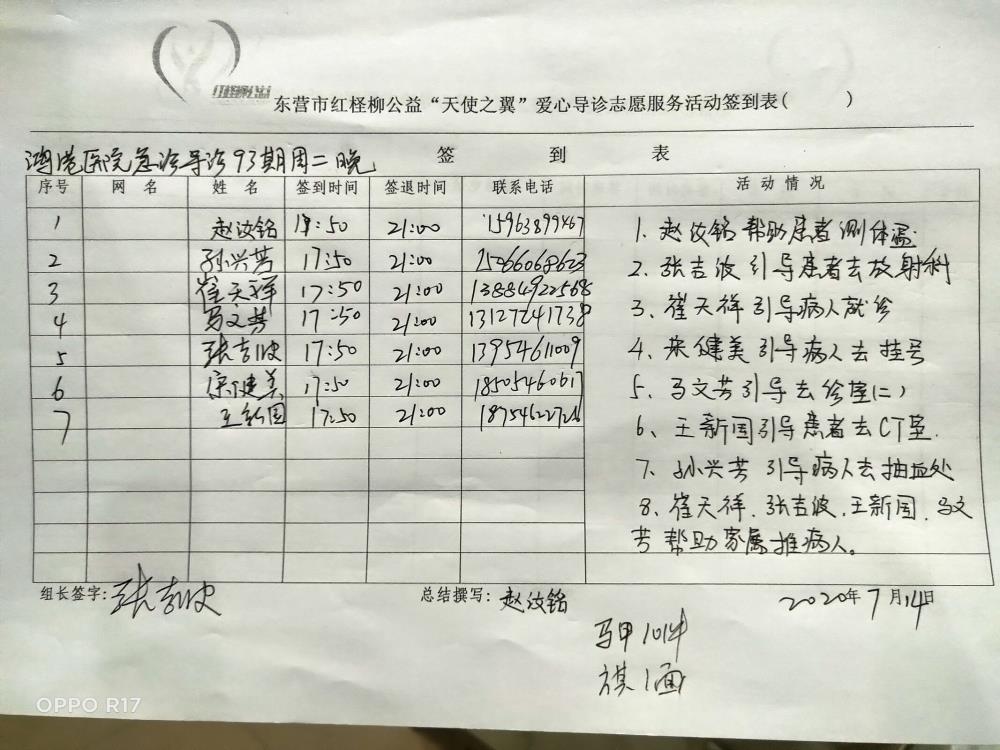 红柽柳公益
东营市红柽柳公益“天使之翼”爱心导诊志愿服务活动签到表( )
鸿港医院急诊导诊93期周二晚
签 到 表
序号 网 名 姓 名 签到时间 签退时间 联系电话 活 动 情 况
1 赵汝铭 17:50 21:00 15963899467
2 孙兴芳 17:50 21:00 15266068623
3 崔天祥 17:50 21:00 13884922568
4 马文芳 17:50 21:00 13127241738
5 张吉波 17:50 21:00 13954611009
6 宋健美 17:50 21:00 18505460617
7 王新国 17:50 21:00 18754622726
1. 赵汝铭帮助患者测体温
2、张吉波引导患者去放射科
3、崔天祥引导病人就诊
4、宋健美引导病人去挂号
5、马文芳引导去诊室(二)
6、王新国引导患者去CT室.
7、孙兴芳引导病人去抽血处
8、崔天祥.张吉波.王新国.马文
芳帮助家属推病人。
组长签字:张吉波 总结撰写:赵汝铭 2020年7月14日
马甲10件
旗1面
OPPO R17